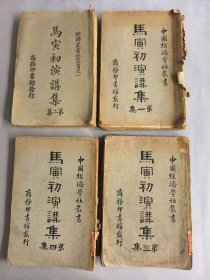 中國經濟學社叢書
馬寅初演講集
第一集
商務印書館發行
馬寅初演講集
第二集
商務印書館發行
中國經濟學社叢書
馬寅初演講集
第三集
商務印書館發行
中國經濟學社叢書
馬寅初演講集
第四集
商務印書館發行